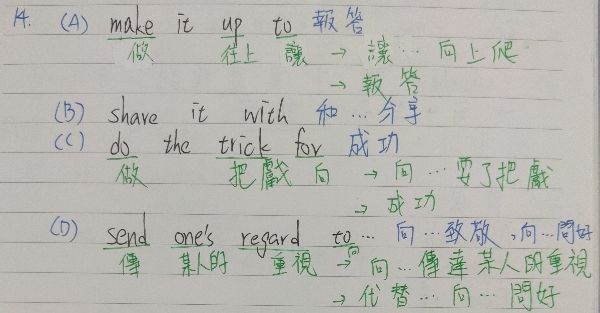 14. (A) make it up to 報答
做 往上 讓 → 讓… 向上爬
→ 報答
(B) share it with 和…分享
(C) do the trick for 成功
做 把戲 向 → 向…耍了把戲
→ 成功
(D) send one's regard to… 向…致敬,向…問好
傳 某人的 重視 向 → 向…傳達某人的重視
→ 代替…向…問好